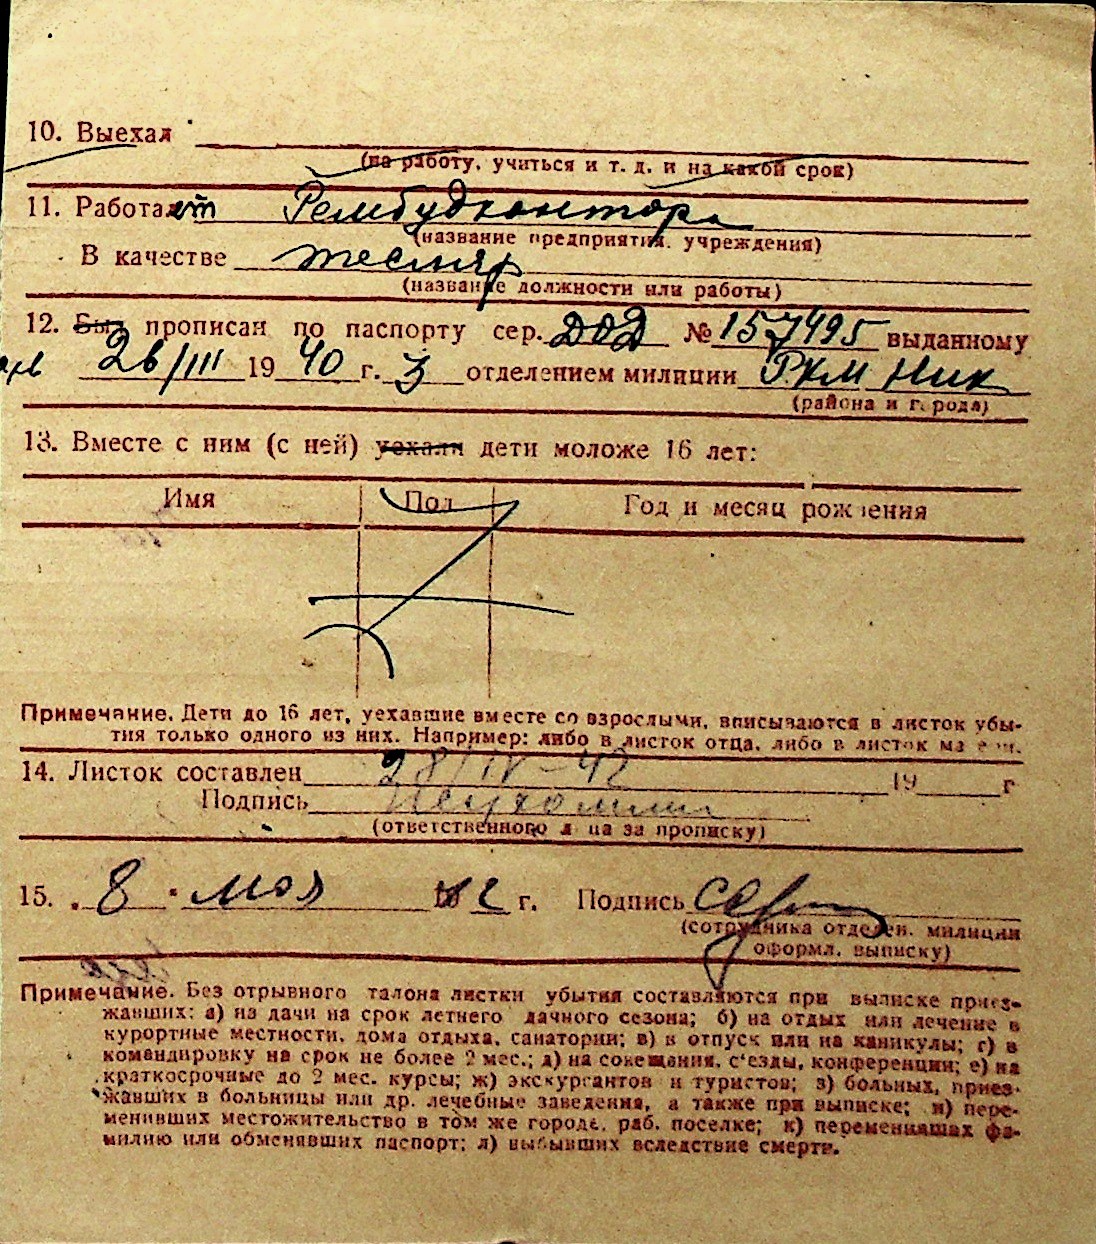 10. Выехал
(на работу, учиться и т. д. и на какой срок)
11. Работает Рембудконтора
(название предприятия, учреждения)
В качестве тесляр
(название должности или работы)
12. Был прописан по паспорту сер. ДОД № 157495 выданному
26/III 1940 г. 3 отделением милиции РКМ Ник
(района и города)
13. Вместе с ним (с ней) уехали дети моложе 16 лет:
Имя Пол Год и месяц рождения
Примечание. Дети до 16 лет, уехавшие вместе со взрослыми, вписываются в листок убы-
тия только одного из них. Например: либо в листок отца, либо в листок матери.
14. Листок составлен 28/IV-42 19 г
Подпись
(ответственного лица за прописку)
15. „8" мая 42 г. Подпись
(сотрудника отделен. милиции
оформл. выписку)
Примечание. Без отрывного талона листки убытия составляются при выписке приез-
жавших: а) на дачи на срок летнего дачного сезона; б) на отдых или лечение в
курортные местности, дома отдыха, санатории; в) в отпуск или на каникулы; г) в
командировку на срок не более 2 мес.; д) на совещания, с'езды, конференции; е) на
краткосрочные до 2 мес. курсы; ж) экскурсантов и туристов; з) больных, приез-
жавших в больницы или др. лечебные заведения, а также при выписке; и) пере-
менивших местожительство в том же городе, раб. поселке; к) переменивших фа-
милию или обменявших паспорт; л) выбывших вследствие смерти.